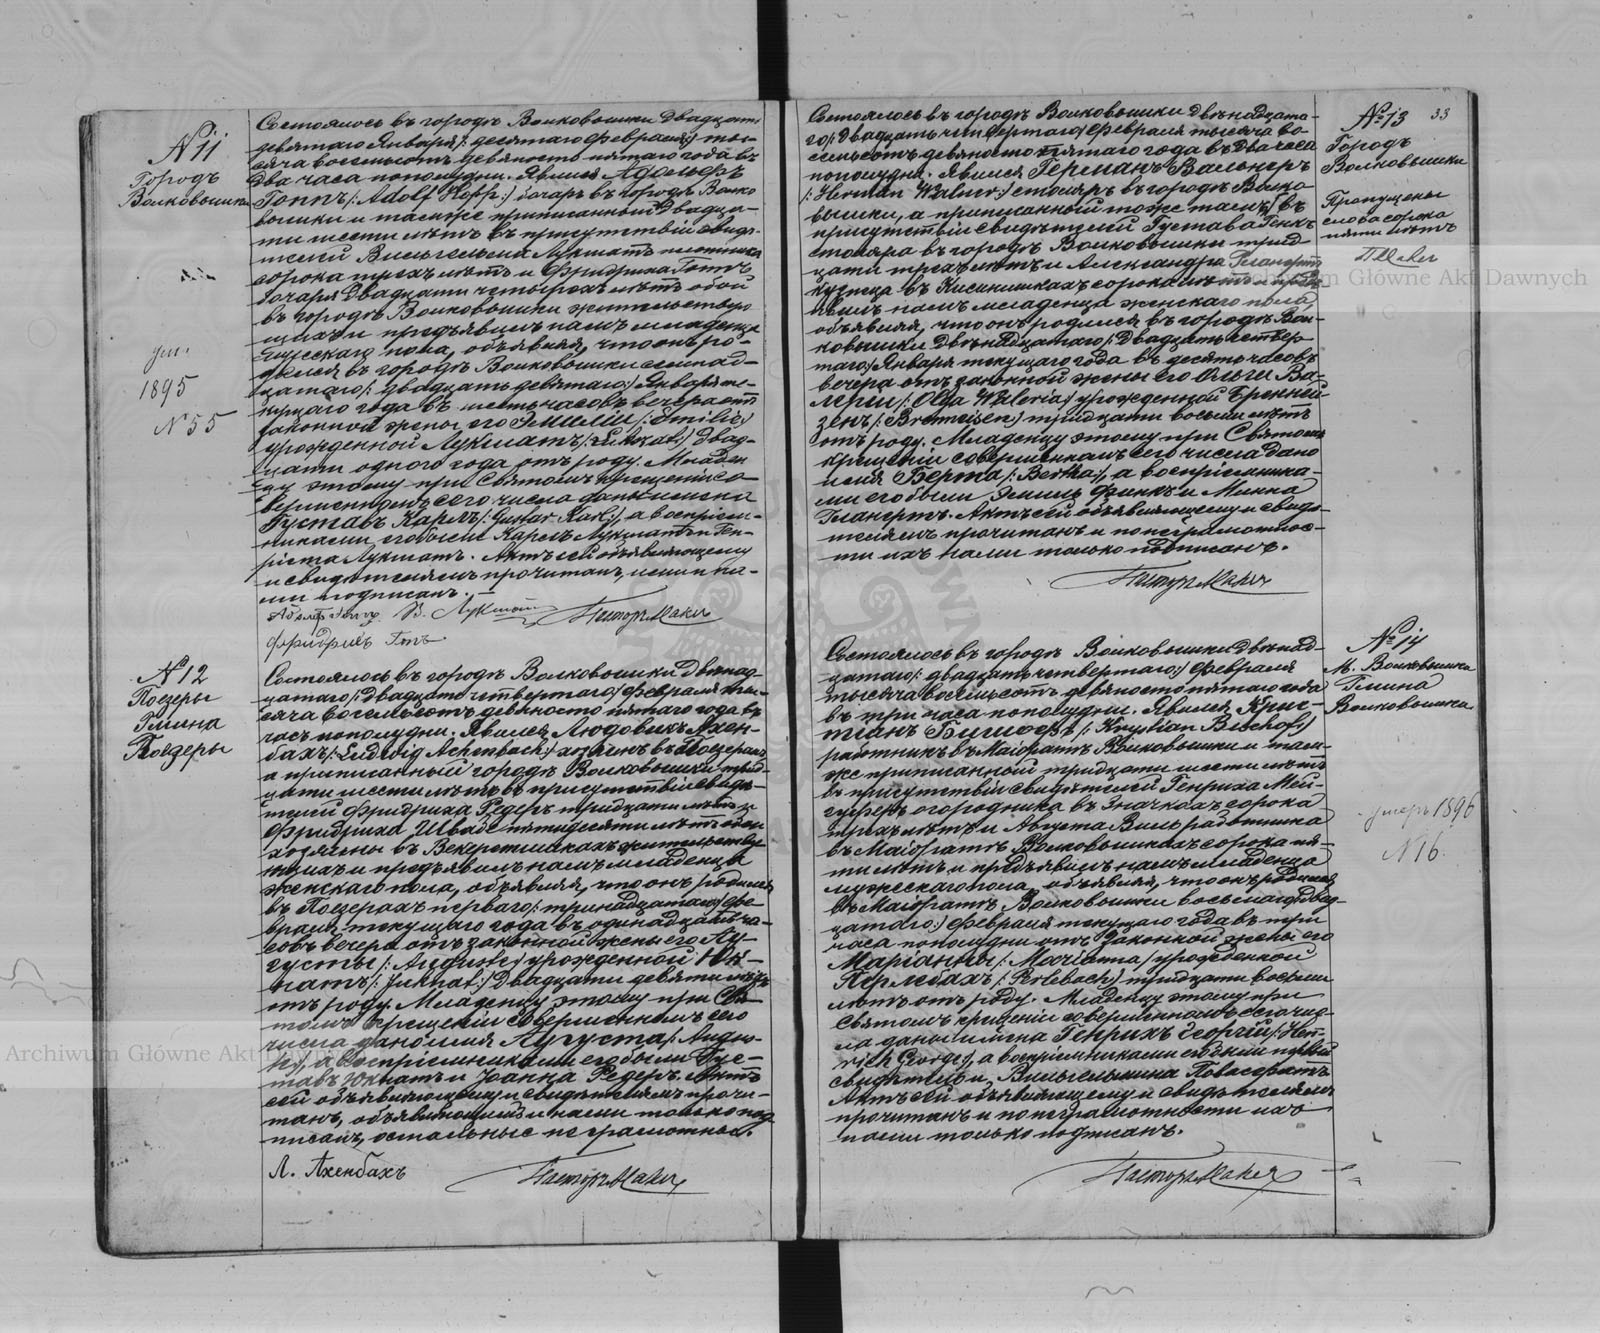 N 11
Городъ
Волковышки
ум.
1895
N 55
Состоялось въ городѣ Волковышки двадцать
девятаго Января /: десятаго Февраля :/ ты-
сяча восемьсотъ девяносто пятаго года въ
два часа пополудни. Явился Адольфъ
Гоппъ /: Adolf Hopp :/ бочаръ въ городѣ Волко
вышки и тамже приписанный двадца-
ти шести лѣтъ въ присутствіи свидѣ-
телей Вильгельма Лукшатъ плотника
сорока трехъ лѣтъ и Фридриха Гоппъ
бочаря двадцати четырехъ лѣтъ обой
въ городѣ Волковышки жительствую
щихъ и предъявилъ намъ младенца
мужескаго пола, объявляя, что онъ ро-
дился въ городѣ Волковышки семнад-
цатаго /: двадцать девятаго :/ Января те-
кущаго года въ шесть часовъ вечера отъ
законной жены его Эмиліи /: Emilie :/
урожденной Лукшатъ /: :/ двад-
цати одного года отъ роду. Младен
цу этому при Святомъ крещеніи со-
вершенномъ сего числа даны имена
Густавъ Карлъ /: Gustav Karl :/, а воспріем-
никами его были Карлъ Лукшатъ и Ген-
ріета Лукшатъ. Актъ сей объявляющему
и свидѣтелямъ прочитанъ, ими и на-
ми подписанъ.
Адольфъ Гоппъ В. Лукшатъ Пасторъ
Фридрихъ Гопъ
N 12
Поезеры
Гмина
Поезеры
Состоялось въ городѣ Волковышки двѣнад
цатаго /: двадцать четвертаго :/ Февраля ты-
сяча восемьсотъ девяносто пятаго года въ
часъ пополудни. Явился Людовикъ Ахен-
бахъ /: Ludwig Achenbach :/ хозяинъ въ Поезерахъ
а приписанный городѣ Волковышки трид-
цати шести лѣтъ въ присутствіи свидѣ-
телей Фридриха Редеръ тридцати лѣтъ и
Фридриха Швабе пятидесяти лѣтъ обои
хозяины въ жительству
ющихъ и предъявилъ намъ младенца
женскаго пола, объявляя, что онъ родился
въ Поезерахъ перваго /: тринадцатаго :/ Фе
враля текущаго года въ одинадцать ча-
совъ вечера отъ законной жены его Ау-
густы /: Auguste :/ урожденной Юк-
натъ /: Juknat :/ двадцати девяти лѣтъ
отъ роду. Младенцу этому при Свя-
томъ крещеніи совершенномъ сего
числа дано имя Аугуста /: Augus-
te :/, а воспріемниками его были Гус-
тавъ Юкнатъ и Іоанна Редеръ. Актъ
сей объявляющему и свидѣтелямъ прочи-
танъ, объявляющимъ и нами только под
писанъ, остальные неграмотные.
Л. Ахенбахъ Пасторъ
33
№ 13
Городъ
Волковышки
Пропущены
слова сорока
пяти лѣтъ
Состоялось въ городѣ Волковышки двѣнадцата-
го /: двадцать четвертаго :/ Февраля тысяча во-
семьсотъ девяносто пятаго года въ два часа
пополудни. Явился Германъ Вальнеръ
/: Herman Walner :/ столяръ въ городѣ Волко
вышки, а приписанный тоже тамъ / въ
присутствіи свидѣтелей Густава Генкъ
столяра въ городѣ Волковышки трид
цати трехъ лѣтъ и Александра
кузнеца въ сорока лѣтъ и предъ
явилъ намъ младенца женскаго пола,
объявляя, что онъ родился въ городѣ Вол-
ковышки двѣнадцатаго /: двадцать четвер-
таго :/ Января текущаго года въ десять часовъ
вечера отъ законной жены его Ольги Ва-
леріи /: Olga Waleria :/ урожденной
зенъ тридцати восьми лѣтъ
отъ роду. Младенцу этому при Святомъ
крещеніи совершенномъ сего числа дано
имя Берта /: Bertha :/, а воспріемника-
ми его были Эмиль Финкъ и Минна
Актъ сей объявляющему и свидѣ-
телямъ прочитанъ и по неграмотнос-
ти ихъ нами только подписанъ.
Пасторъ
№ 14
М. Волковышки
Гмина
Волковышки
умеръ 1896
N 16.
Состоялось въ городѣ Волковышки двѣнад-
цатаго /: двадцать четвертаго :/ Февраля
тысяча восемьсотъ девяносто пятаго года
въ три часа пополудни. Явился Крис-
тіанъ Бишофъ /: Krystian Bischof :/
работникъ въ Маіоратѣ Волковышки и там-
же приписанный тридцати шести лѣтъ
въ присутствіи свидѣтелей Генриха Мей-
огородника въ сорока
трехъ лѣтъ и Августа Виль работника
въ Маіоратѣ Волковышкахъ сорока пя-
ти лѣтъ и предъявилъ намъ младенца
мужескаго пола, объявляя, что онъ родился
въ Маіоратѣ Волковышки восьмаго /: двад-
цатаго :/ Февраля текущаго года въ три
часа пополудни отъ законной жены его
Маріанны /: Marianna :/ урожденной
Перлебахъ /: Perlebach :/ тридцати восьми
лѣтъ отъ роду. Младенцу этому при
Святомъ крещеніи совершенномъ сего чис-
ла даны имена Генрихъ Георгій /: Hein-
rich Georg :/, а воспріемниками его были первый
свидѣтель и Вильгельмина
Актъ сей объявляющему и свидѣтелямъ
прочитанъ и по неграмотности ихъ
нами только подписанъ.
Пасторъ
Archiwum Główne Akt Dawnych
Archiwum Główne Akt Dawnych